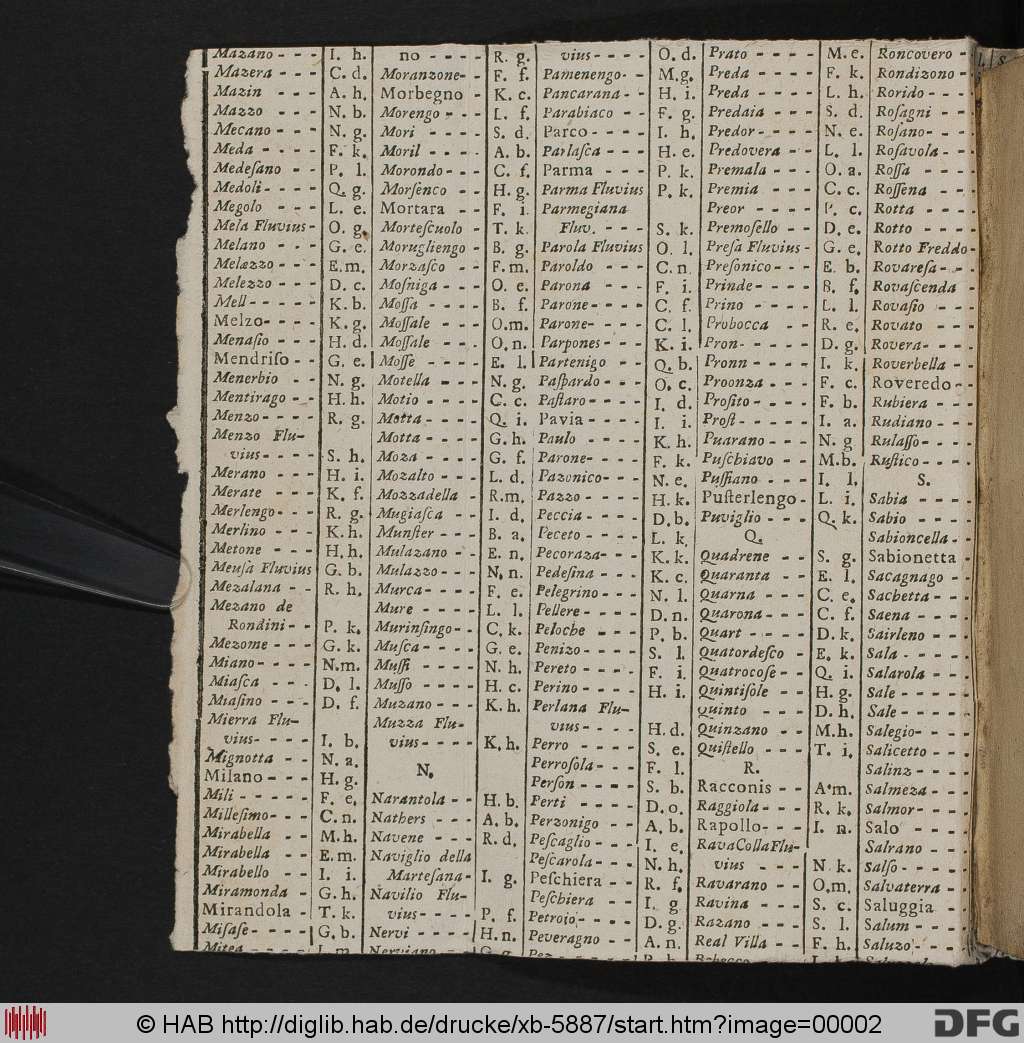 Mazano - - - I. h.
Mazera - - - C. d.
Mazin - - - A. h.
Mazzo - - - N. b.
Mecano - - - N. g.
Meda - - - - F. k.
Medeſano - - P. l.
Medoli- - - - Q. g.
Megolo - - - L. e.
Mela Fluvius- O. g.
Melano - - - G. e.
Melazzo - - - E. m.
Melezzo - - - D. c.
Mell - - - - K. b.
Melzo- - - - K. g.
Menaſio - - - H. d.
Mendriſo - - G. e.
Menerbio - - N. g.
Mentirago - - H. h.
Menzo - - - - R. g.
Menzo Flu-
vius - - - - S. h.
Merano - - - H. i.
Merate - - - K. f.
Merlengo- - - R. g.
Merlino - - - K. h.
Metone - - - H. h.
Meuſa Fluvius G. b.
Mezalana - - R. h.
Mezano de
Rondini - - P. k.
Mezome - - - G. k.
Miano- - - - N. m.
Miaſca - - - D. l.
Miaſino - - - D. f.
Mierra Flu-
vius- - - - I. b.
Mignotta - - N. a.
Milano - - - H. g.
Mili - - - - - F. e.
Milleſimo- - - C. n.
Mirabella - - M. h.
Mirabella - - E. m.
Mirabello - - I. i.
Miramonda - G. h.
Mirandola - T. k.
Miſaſe- - - - G. b.
no - - - - R. g.
Moranzone- - F. f.
Morbegno - K. c.
Morengo - - - L. f.
Mori - - - - S. d.
Moril - - - - A. b.
Morondo- - - C. f.
Morſenco - - H. g.
Mortara - - F. i.
Morteſcuolo - T. k.
Morugliengo - B. g.
Morzaſco - - F. m.
Moſniga - - - O. e.
Moſſa - - - - B. f.
Moſſale - - - O. m.
Moſſale - - - O. n.
Moſſe - - - - E. l.
Motella - - - N. g.
Motio - - - - C. c.
Motta - - - - Q. i.
Motta - - - - G. h.
Moza - - - - G. f.
Mozalto - - - L. d.
Mozzadella - R. m.
Mugiaſca - - I. d.
Munſter - - - B. a.
Mulazano - - E. n.
Mulazzo - - - N. n.
Murca- - - - F. e.
Mure - - - - L. l.
Murinſingo- - C. k.
Muſca- - - - G. e.
Muſſi - - - - N. h.
Muſſo - - - - H. c.
Muzano - - - K. h.
Muzza Flu-
vius - - - - K. h.
N.
Narantola - - H. b.
Nathers - - - A. b.
Navene - - - R. d.
Naviglio della
Marteſana- I. g.
Navilio Flu-
vius- - - - - P. f.
Nervi - - - - - H. n.
vius- - - - O. d.
Pamenengo- - M. g.
Pancarana - - H. i.
Parabiaco - - F. g.
Parco- - - - I. h.
Parlaſca - - - H. e.
Parma - - - P. k.
Parma Fluvius P. k.
Parmegiana
Fluv. - - - S. k.
Parola Fluvius O. l.
Paroldo - - - C. n.
Parona - - - F. i.
Parone- - - - C. f.
Parone- - - - C. l.
Parpones- - - K. i.
Partenigo - - Q. b.
Paſpardo - - - O. c.
Paſtaro- - - - I. d.
Pavia - - - - I. i.
Paulo - - - - K. h.
Parone- - - - F. k.
Pazonico- - - N. e.
Pazzo - - - - H. k.
Peccia - - - - D. b.
Peceto - - - - L. k.
Pecoraza- - - K. k.
Pedeſina - - - K. c.
Pelegrino - - - N. l.
Pellere - - - - D. n.
Peloche - - - P. b.
Penizo - - - - S. l.
Pereto - - - - F. i.
Perino - - - - H. i.
Perlana Flu-
vius - - - - H. d.
Perro - - - - S. e.
Perroſola - - - F. l.
Perſon - - - - S. b.
Perti - - - - D. o.
Perzonigo - - A. b.
Peſcaglio - - - I. e.
Peſcarola - - - N. h.
Peſchiera - - R. f.
Peſchiera - - I. g
Petroio - - - - D. g.
Peveragno - - A. n.
Prato - - - - M. e.
Preda - - - - F. k.
Preda - - - - L. h.
Predaia - - - S. d.
Predor- - - - N. e.
Predovera - - L. l.
Premala - - - O. a.
Premia - - - C. c.
Preor - - - - P. c.
Premoſello - - D. e.
Preſa Fluvius - G. e.
Preſonico- - - E. b.
Prinde- - - - B. f.
Prino - - - - L. l.
Probocca - - R. e.
Pron- - - - - D. g.
Pronn - - - - I. k.
Proonza - - - F. c.
Proſito- - - - F. b.
Proſt - - - - - I. a.
Puarano - - - N. g
Puſchiavo - - M. b.
Puſſiano - - - I. l.
Puſterlengo - L. i.
Puviglio - - - Q. k.
Q.
Quadrene - - S. g.
Quaranta - - E. l.
Quarna - - - C. e.
Quarona- - - C. f.
Quart - - - - D. k.
Quatordeſco - E. k.
Quatrocoſe - - Q. i.
Quintiſole - - H. g.
Quinto - - - D. h.
Quinzano - - M. h.
Quiſtello - - - T. i.
R.
Racconis - - A. m.
Raggiola- - - R. k.
Rapollo- - - I. n.
RavaCollaFlu-
vius - - - N. k.
Ravarano - - O. m.
Ravina - - - S. c.
Razano - - - S. l.
Real Villa - - F. h.
Roncovero -
Rondizono -
Rorido - - -
Roſagni - -
Roſano- - -
Roſavola- -
Roſſa - - -
Roſſena - -
Rotta - - -
Rotto - - -
Rotto Freddo-
Rovareſa- -
Rovaſcenda -
Rovaſio - -
Rovato - -
Rovera- - -
Roverbella -
Roveredo - -
Rubiera - -
Rudiano - -
Rulaſſo- - -
Ruſtico- - -
S.
Sabia - - - -
Sabio - - - -
Sabioncella -
Sabionetta -
Sacagnago -
Sachetta- - -
Saena - - - -
Sairleno - - -
Sala- - - - -
Salarola - - -
Sale - - - - -
Sale- - - - -
Salegio- - - -
Salicetto - - -
Salinz - - - -
Salmeza - - -
Salmor- - - -
Salo - - - -
Salrano - - -
Salſo- - - - -
Salvaterra - -
Saluggia - -
Salum - - - -
Saluzo- - - -
© HAB http://diglib.hab.de/drucke/xb-5887/start.htm?image=00002
DFG